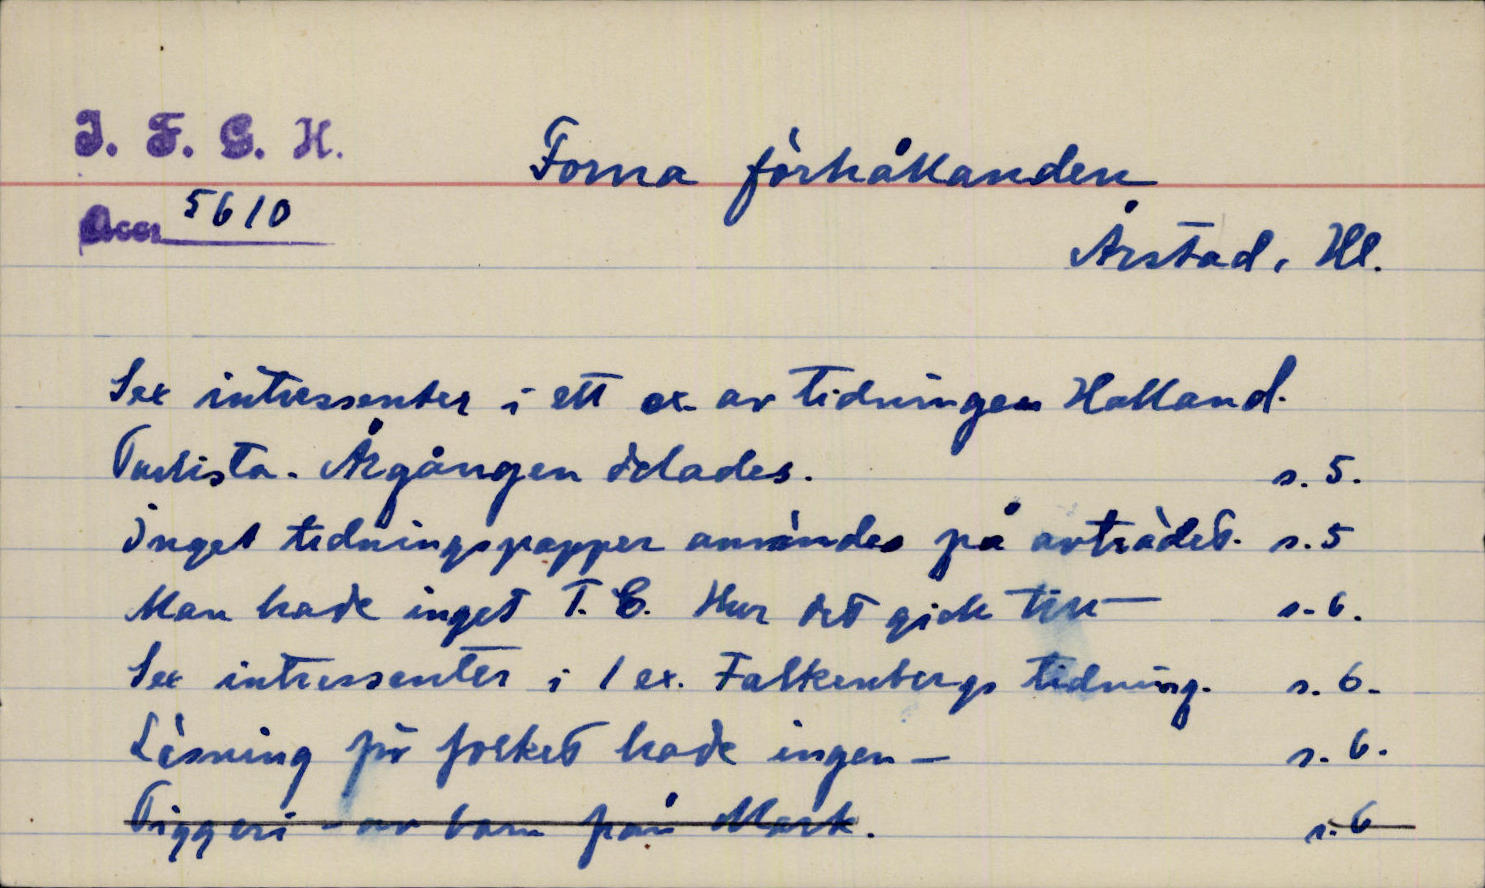 I. F. G. H.
Forna förhållanden
Acc. 5610
Årstad, Hl.
Sex intressenter i ett ex. av tidningen Halland.
Årgången delades. s. 5.
Inget tidningspapper användes på avträdet. s. 5
Man hade inget T. C. Hur det gick till— s. 6.
Sex intressenter i 1 ex. Falkenbergs tidning. s. 6.
Läsning för folket hade ingen — s. 6.
Tiggeri - av barn från Mark. s. 6